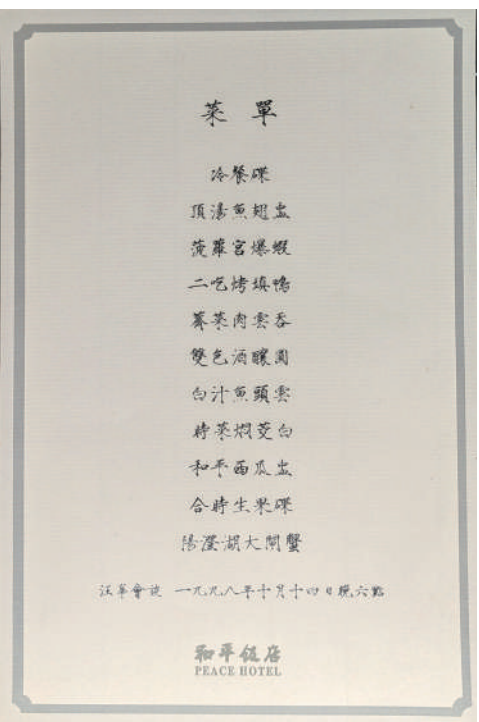 菜單
冷餐碟
頂湯魚翅盅
菠蘿宮爆蝦
二吃烤填鴨
薺菜肉雲吞
雙色酒釀圓
白汁魚頭雲
時菜燜茭白
和平西瓜盅
合時生果碟
陽澄湖大閘蟹
汪辜會談 一九九八年十月十四日晚六點
和平飯店
PEACE HOTEL